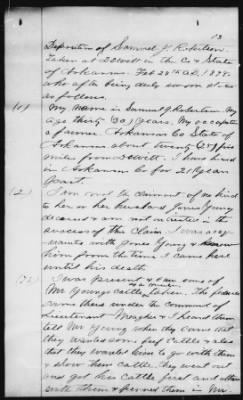 13
Deposition of Samuel J. Robertson
Taken at DeWitt in the Co & State
of Arkansas Feby 28th A.D. 1878.
who after being duly sworn states
as follows.
(1) My name is Samuel J. Robertson My
age thirty (30) years, My occupation
a farmer. Arkansas Co State of
Arkansas about twenty (25) five
miles from DeWitt. I have lived
in Arkansas Co for 21 years
past.
(2.) I am not the claimant of no kind
to her or her husband James Young
deceased & am not interested in the
success of the Claim I was acqu-
ainted with Jones Young & knew
him from the time I came here
until his death.
(7) I was present & saw some of
Mr Young's cattle taken. The
came there under the command of
Lieutenant Meagher & I heard them
tell Mr Young when they came that
they wanted some beef cattle & also
that they wanted him to go with them
& show them cattle. They went out
and got his cattle first and
with them & penned them in Mr.